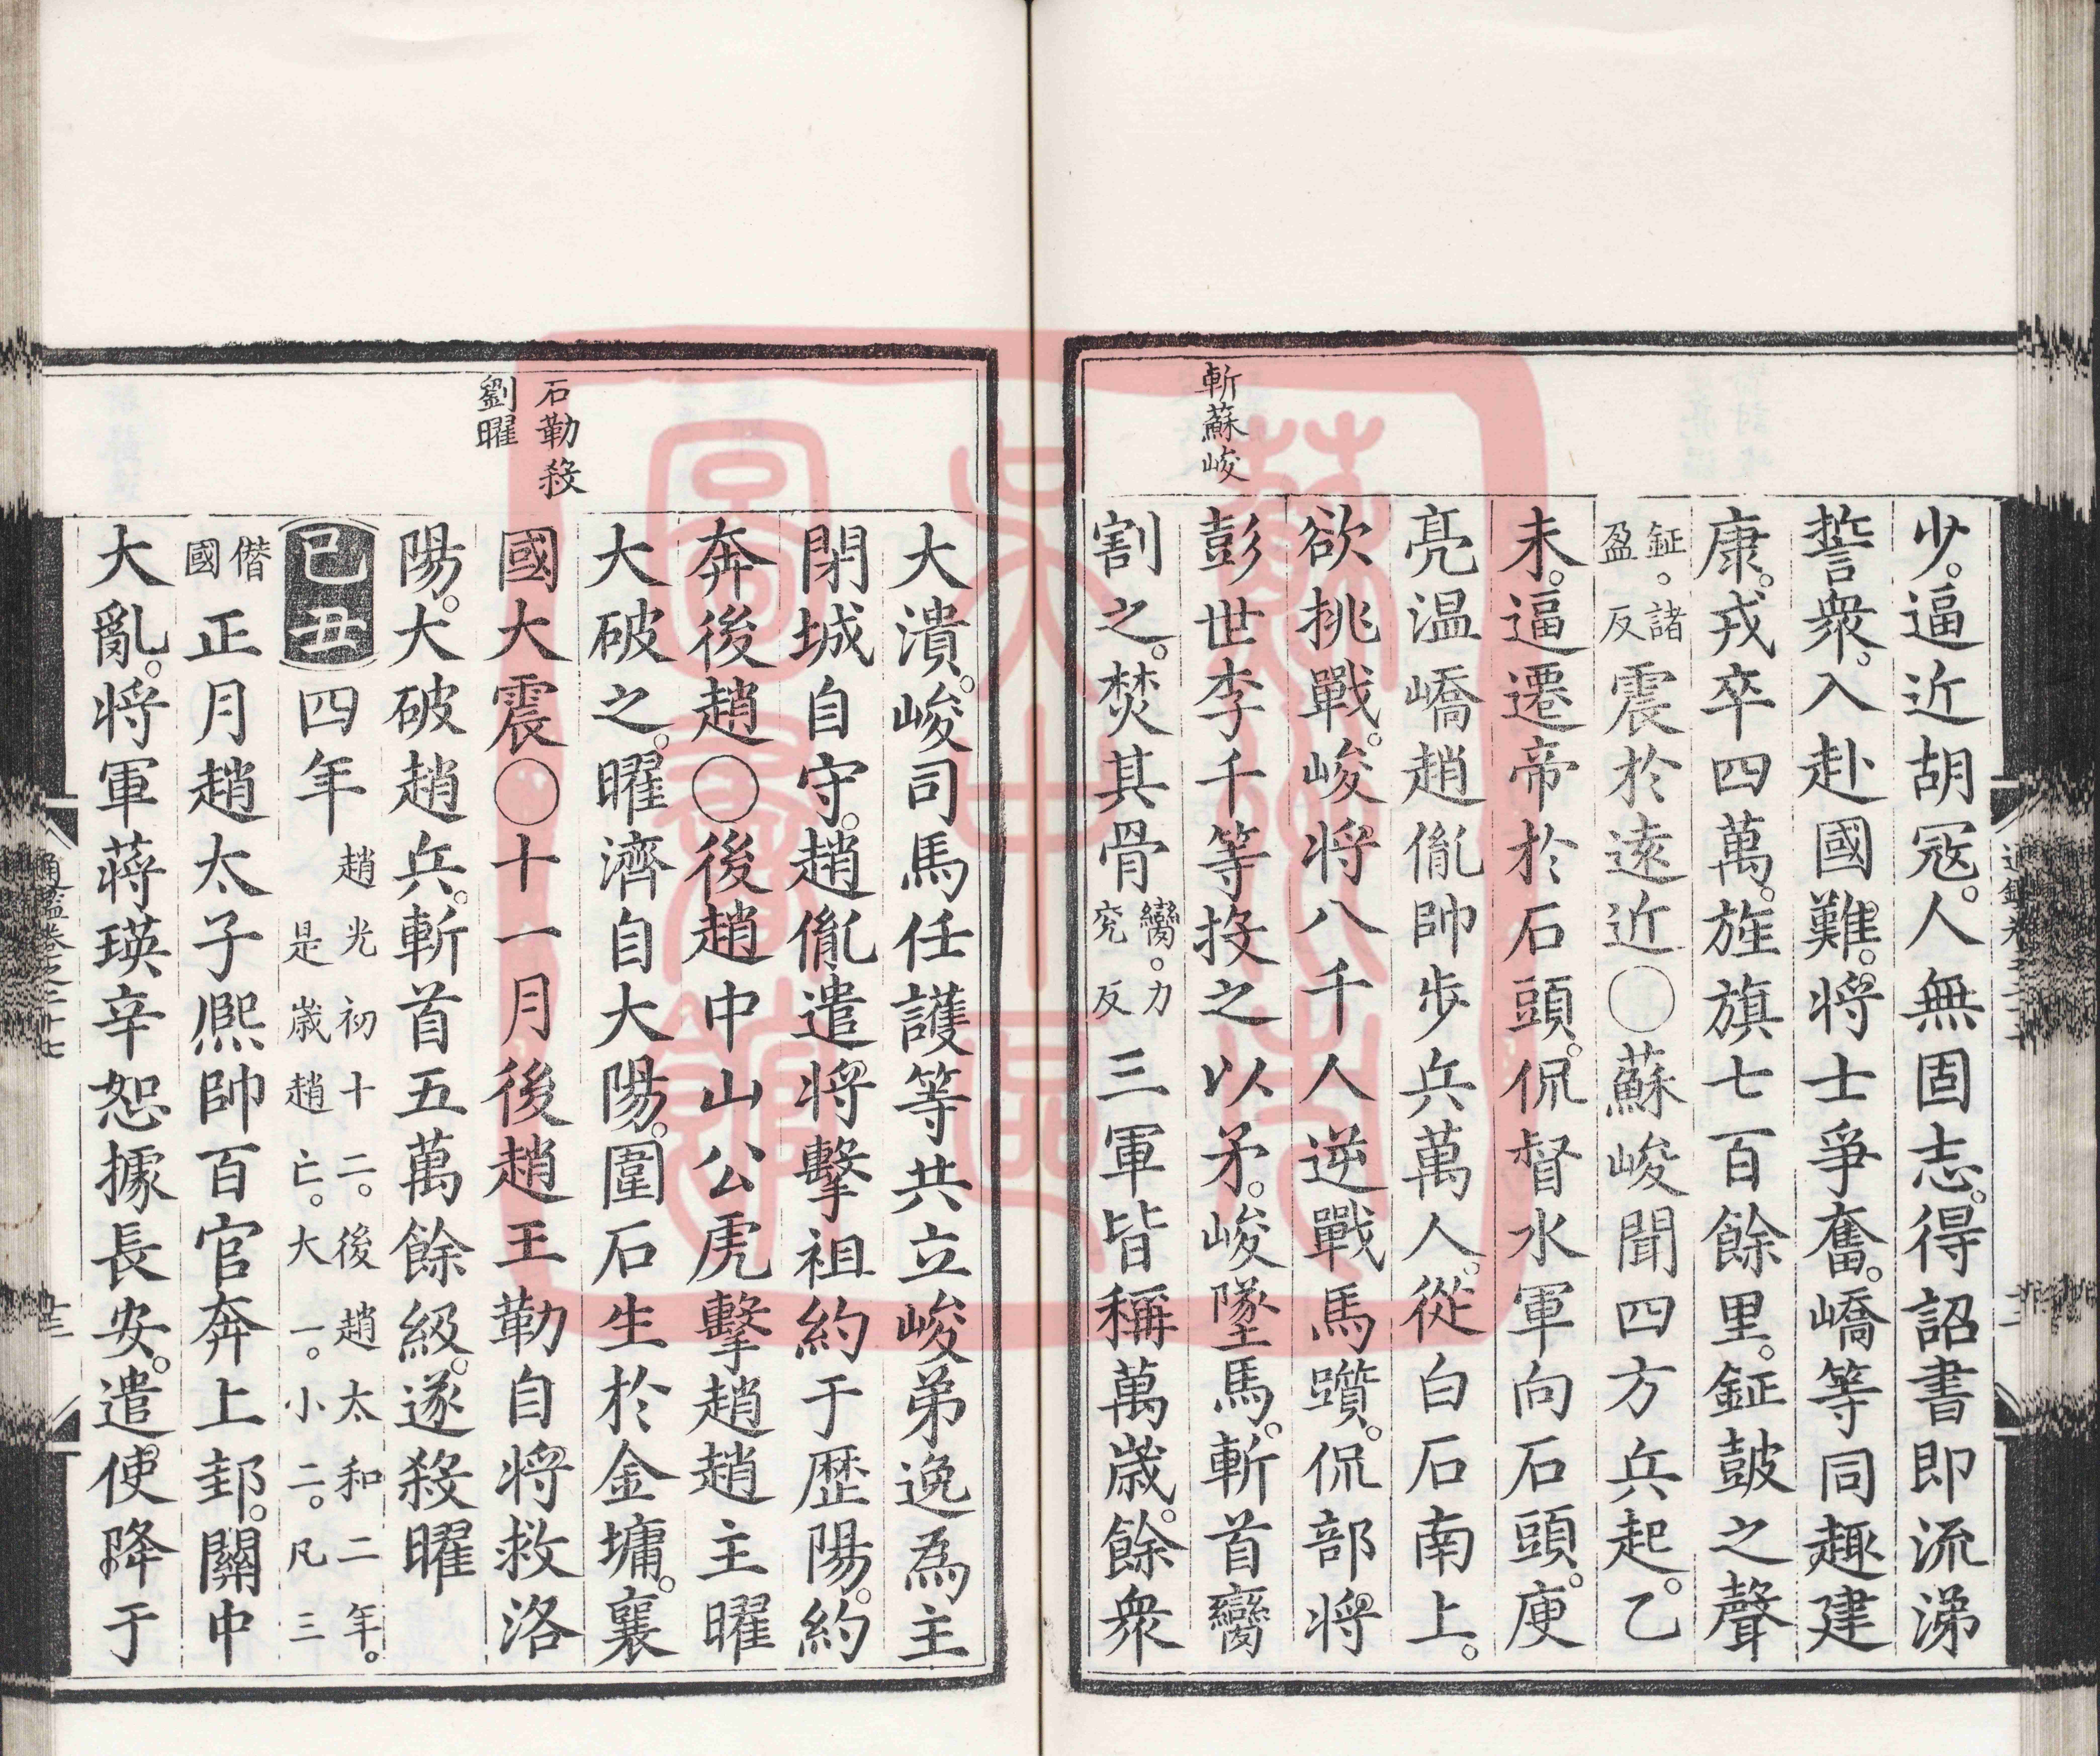 少。逼近胡冦。人無固志。得詔書即流涕
誓衆。入赴國難。將士爭奮。嶠等同趣建
康。戎卒四萬。旌旗七百餘里。鉦鼓之聲
鉦。諸
盈反
震於遠近○蘇峻聞四方兵起。乙
未。逼遷帝於石頭。侃督水軍向石頭。庾
亮温嶠趙胤帥步兵萬人。從白石南上。
欲挑戰。峻將八千人逆戰馬躓。侃部將
斬蘇峻
彭世李千等投之以矛。峻墜馬。斬首臠
割之。焚其骨
臠。力
兖反
三軍皆稱萬歳。餘衆
大潰。峻司馬任護等共立峻弟逸爲主
閉城自守。趙胤遣將擊祖約于歴陽。約
奔後趙○後趙中山公虎擊趙趙主曜
大破之。曜濟自大陽。圍石生於金墉。襄
石勒殺
劉曜
國大震○十一月後趙王勒自將救洛
陽。大破趙兵。斬首五萬餘級。遂殺曜
己丑四年
趙光初十二。後趙太和二年。
是歳趙亡。大一。小二。凡三
僭
國
正月趙太子熙帥百官奔上邽。關中
大亂。將軍蔣瑛辛恕據長安。遣使降于